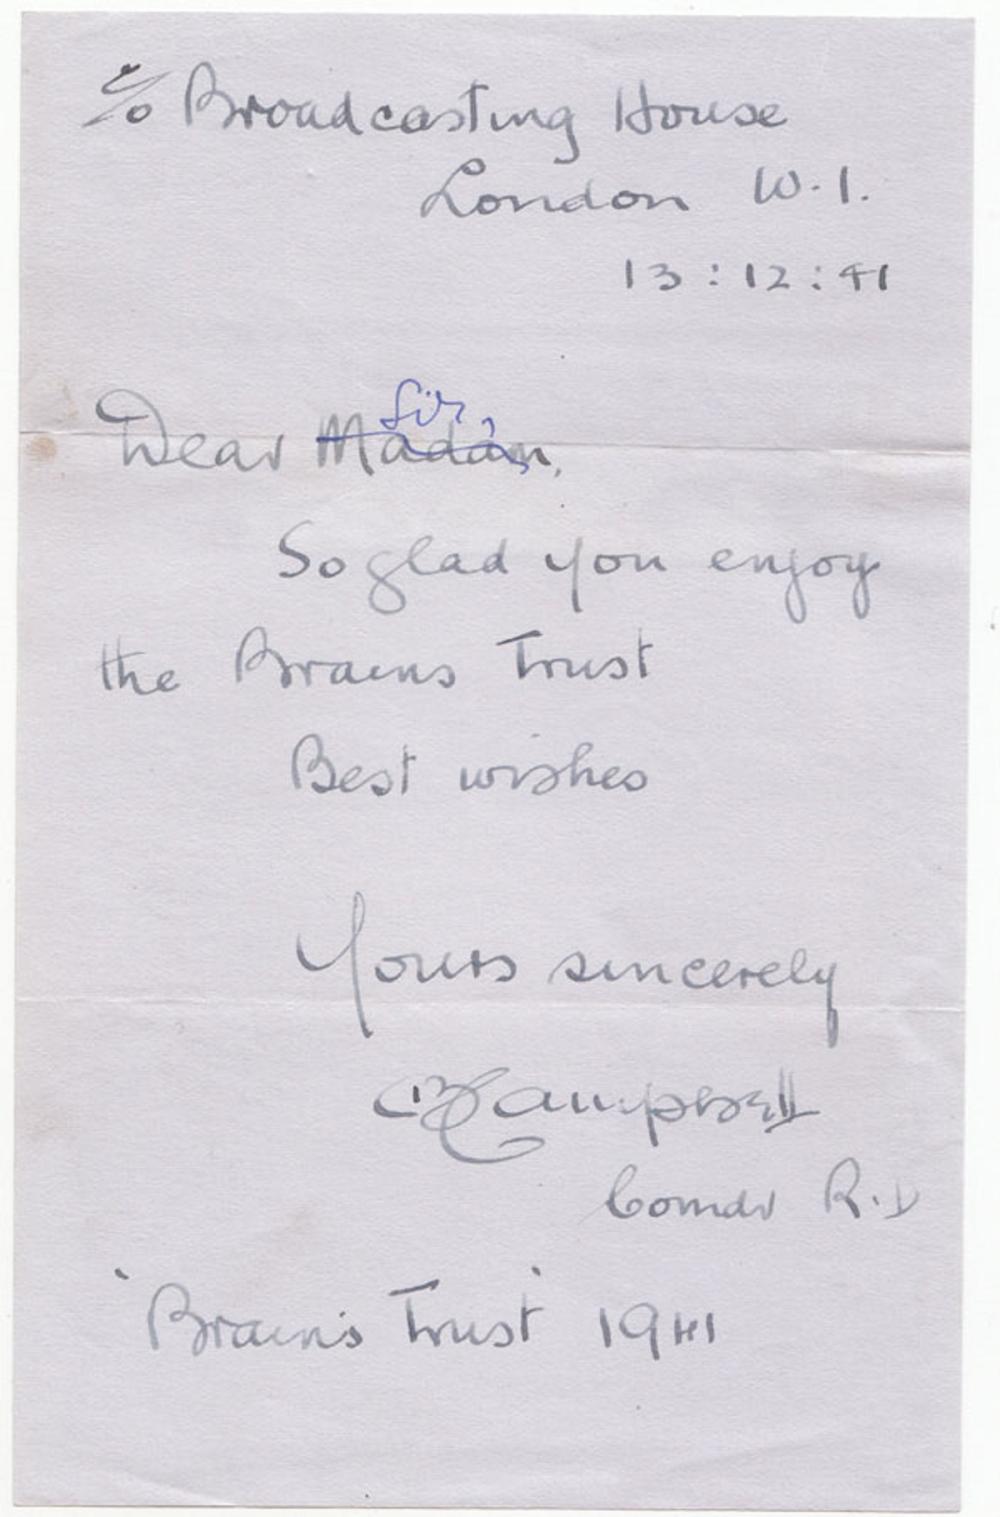 c/o Broadcasting House
London W.1.
13:12:41
Sir,
Dear Madam,
So glad you enjoy
the Brains Trust
Best wishes
Yours sincerely
Campbell
Comdr R.D
'Brains Trust' 1941